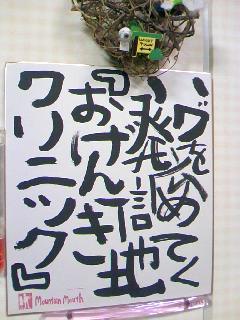 ハグを広めてく
発信地
『おげんき
クリニック』
Mountain Mouth